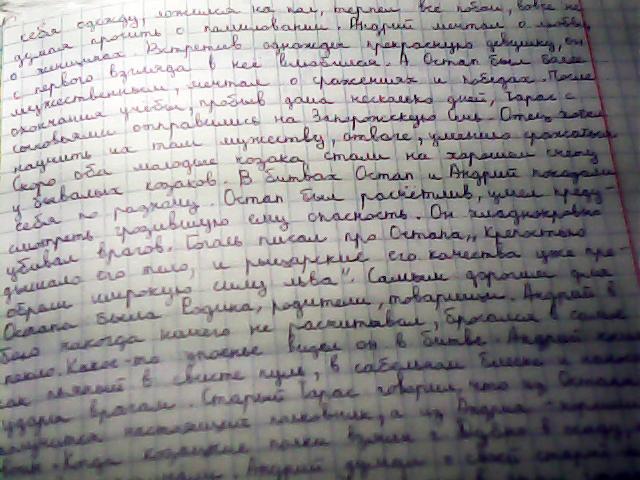 себя одежду, ложился на пол, терпел все побои, вовсе не
думая просить о помиловании. Андрей мечтал о любви,
о женщинах. Встретив однажды прекрасную девушку, он
с первого взгляда в нее влюбился. А Остап был более
мужественным, мечтал о сражениях и победах. После
окончания учёбы, пробыв дома несколько дней, Тарас с
сыновьями отправились на Запорожскую Сечь. Отец хотел
научить их там мужеству, отваге, умению сражаться
Скоро оба молодые козака стали на хорошем счету
у бывалых козаков. В битвах Остап и Андрий показали
себя по разному. Остап был расчётлив, умел преду-
смотреть грозившую ему опасность. Он хладнокровно
убивал врагов. Гоголь писал про Остапа „Крепостью
дышало его тело, и рыцарские его качества уже прио-
брели широкую силу льва". Самым дорогим для
Остапа была Родина, родители, товарищи. Андрий в
бою никогда ничего не рассчитывал, бросался в самое
пекло. Какое-то упоенье видел он в битве. Андрий
как пьяный в свисте пуль, в сабельном блеске и
ударял врагам. Старый Тарас говорил, что из Остапа
получится настоящий полковник, а из Андрия
Когда козацкие полки взяли в осаду
Андрий